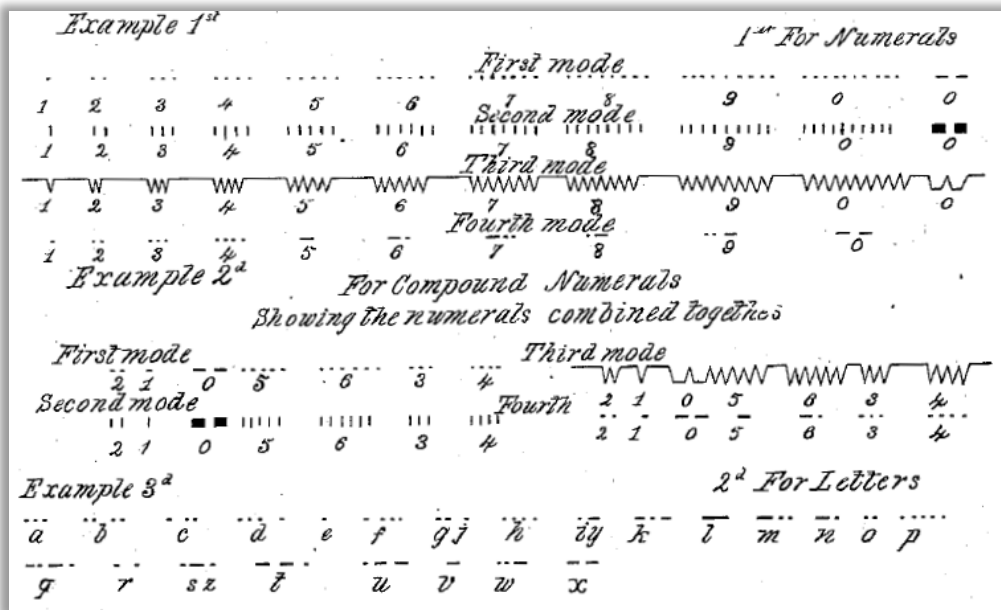 Example 1st
1st For Numerals
First mode
1 2 3 4 5 6 7 8 9 0 0
Second mode
1 2 3 4 5 6 7 8 9 0 0
Third mode
1 2 3 4 5 6 7 8 9 0 0
Fourth mode
1 2 3 4 5 6 7 8 9 0
Example 2d
For Compound Numerals
Showing the numerals combined together
First mode
2 1 0 5 6 3 4
Second mode
2 1 0 5 6 3 4
Third mode
2 1 0 5 6 3 4
Fourth
2 1 0 5 6 3 4
Example 3d
2d For Letters
a b c d e f g j h i y k l m n o p
q r s z t u v w x